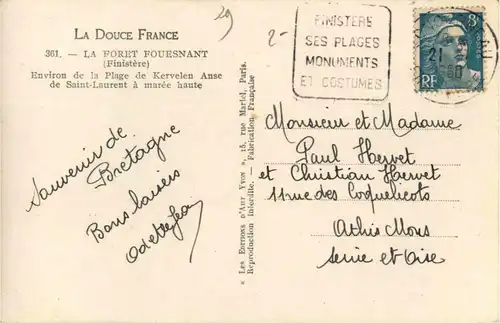 LA DOUCE FRANCE
361. — LA FORET FOUESNANT
(Finistère)
Environ de la Plage de Kervelen Anse
de Saint-Laurent à marée haute
29
2-
FINISTERE
SES PLAGES
MONUMENTS
ET COSTUMES
21
RF
Souvenir de
Bretagne
Bons baisers
Odette Jean
« LES EDITIONS D'ART YVON », 15, rue Martel, Paris.
Reproduction interdite. — Fabrication Française
Monsieur et Madame
Paul Hervet
et Christian Hervet
11 rue des Coquelicots
Athis Mons
Seine et Oise